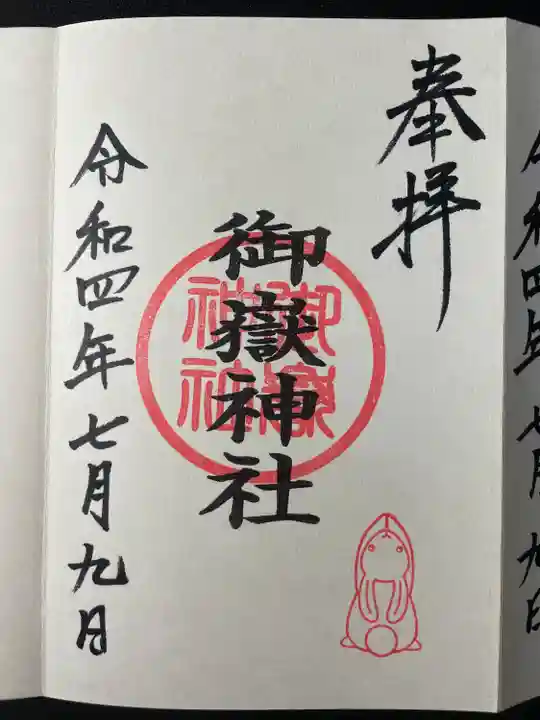 奉拝
御嶽神社
御嶽神社
令和四年七月九日
令和四年七月九日